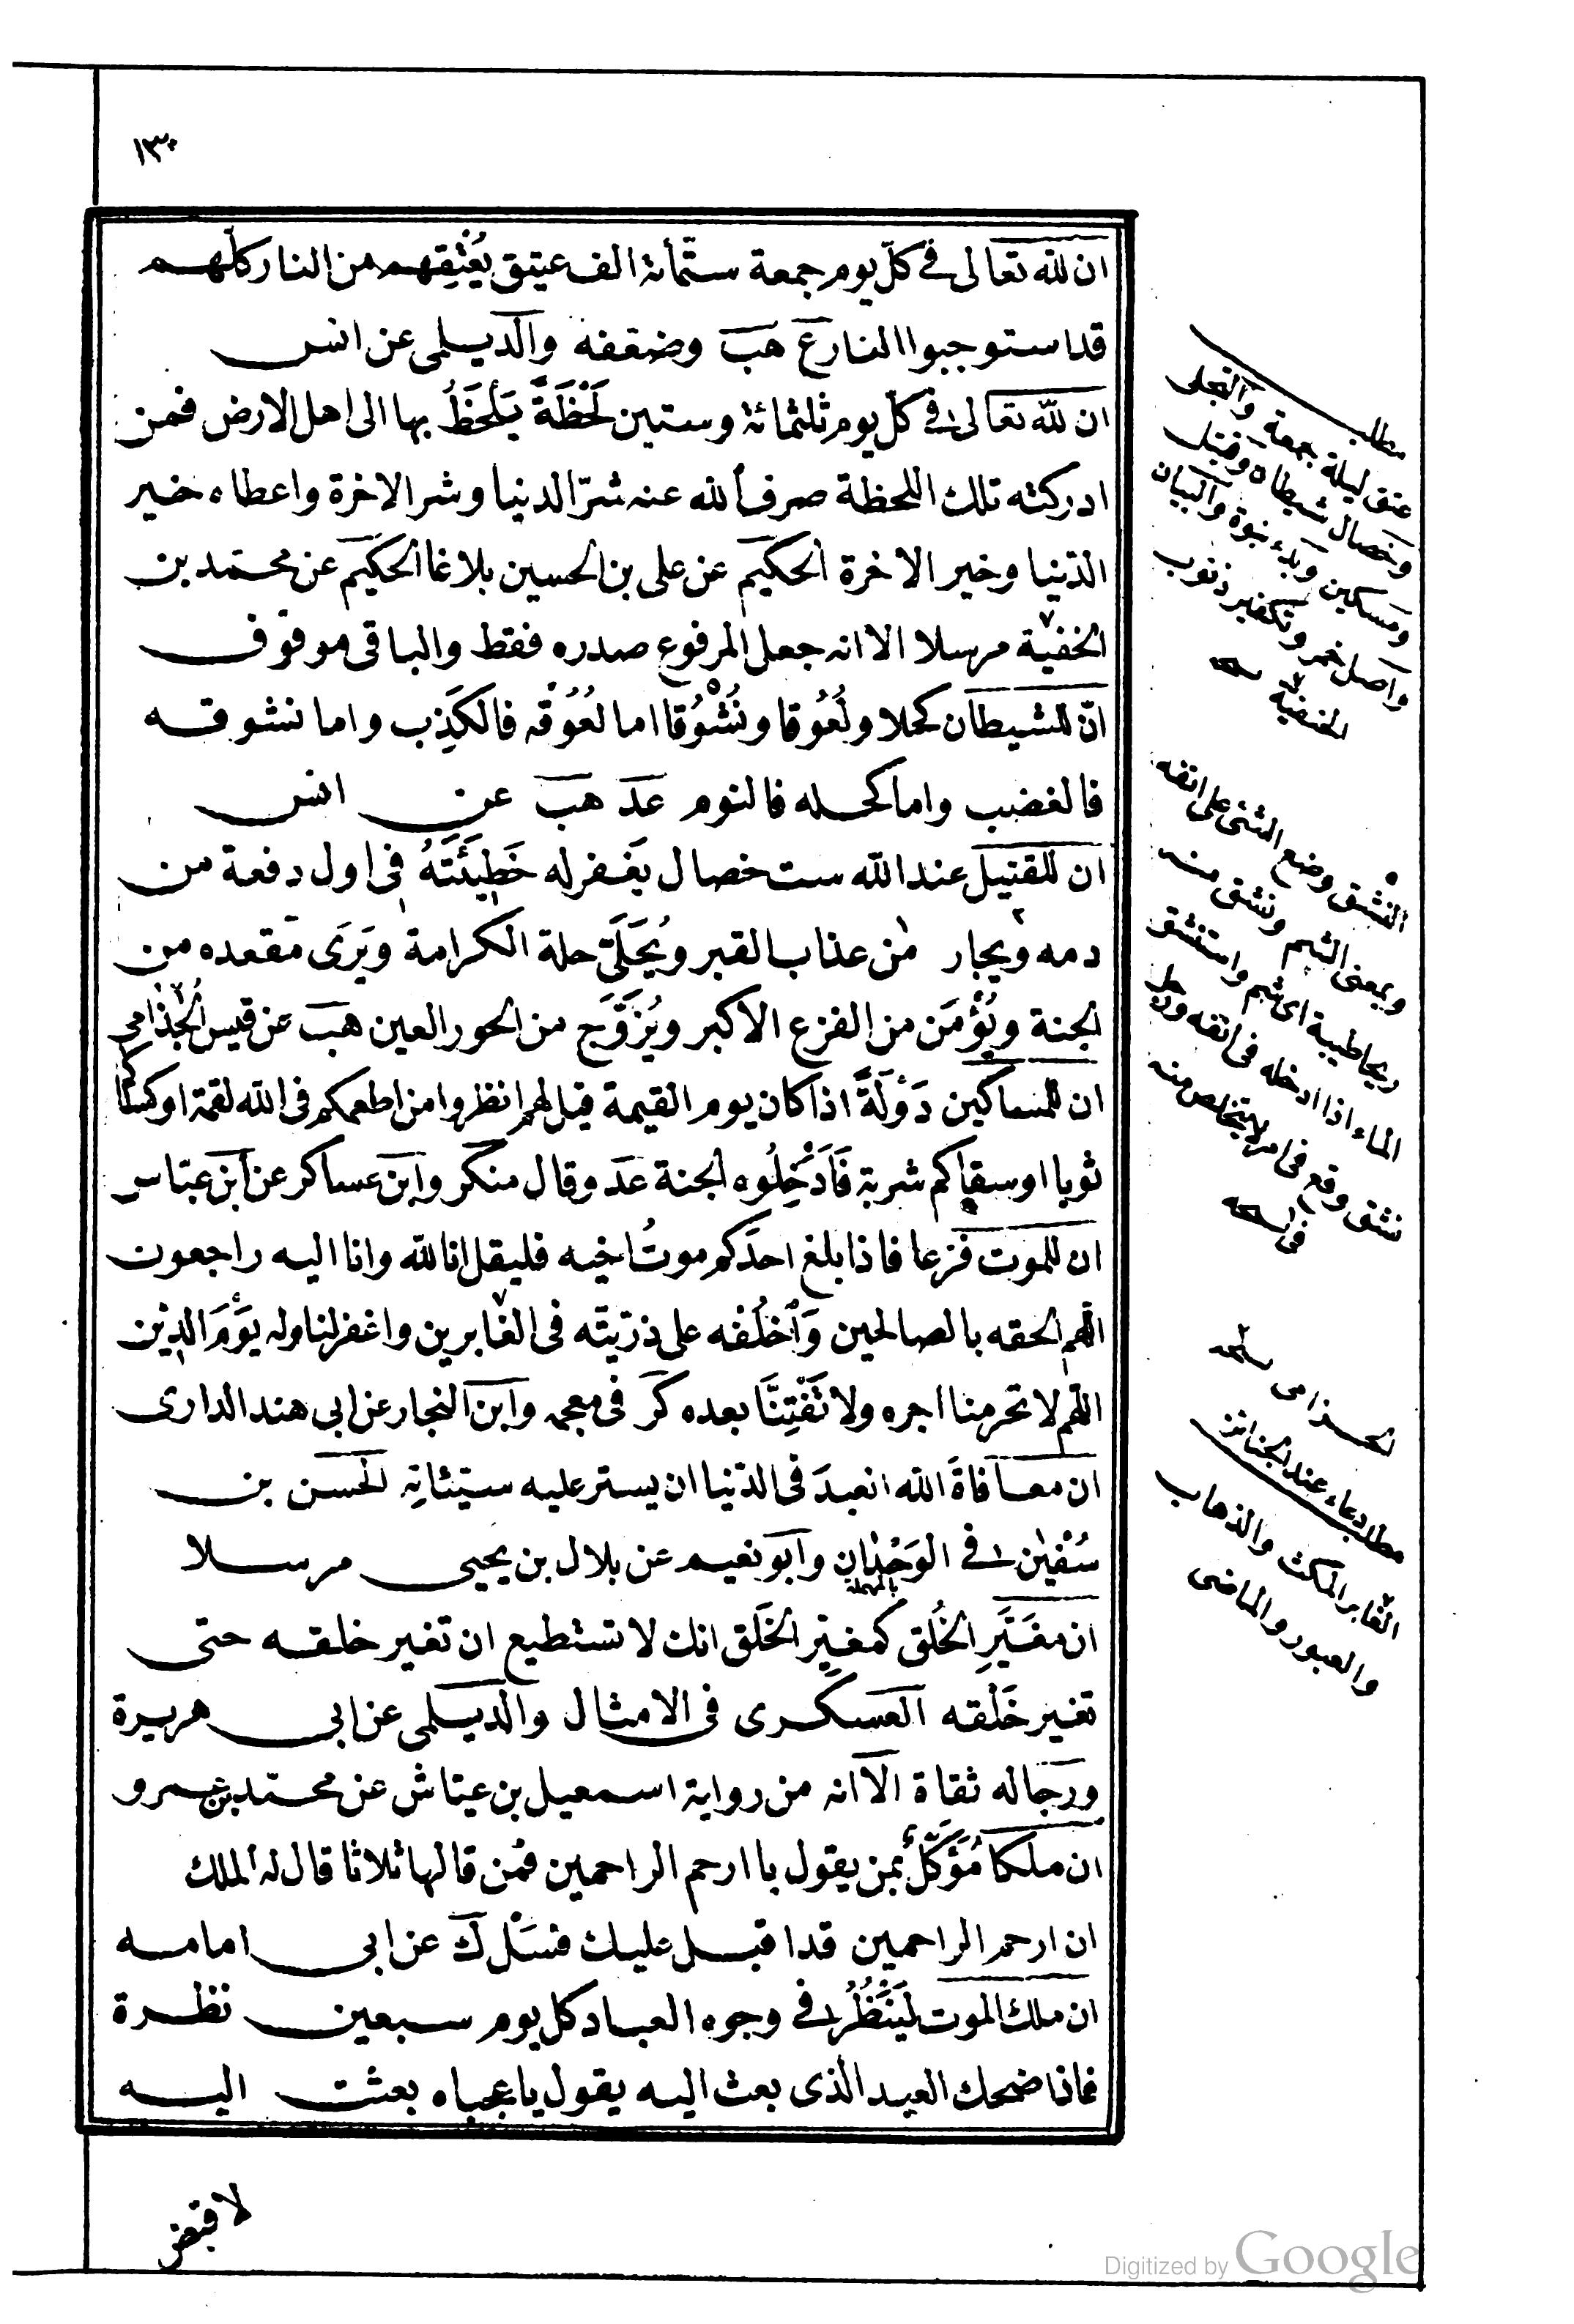 ١٣٠
ان لله تعالى فى كلّ يوم جمعة ستّمأئة الف عتيق يُعْتِقِهم من النار كلّهم
قد استوجبوا النار ع هب وضعفه والديلمى عن انس
ان لله تعالى فى كلّ يوم ثلثمائة وستين لَحْظَةً يَلْحَظُ بها الى اهل الارض فمن
ادركته تلك اللحظة صرف الله عنه شرّ الدنيا وشر الاخرة واعطاه خير
الدّنيا وخير الاخرة الحكيم عن على بن الحسين بلاغا الحكيم عن محمّد بن
الخفية مرسلا الا انه جعل المرفوع صدره فقط والباقى موقوف
انّ للشيطان كحلا ولُعُوقا ونُشُوْقا اما لعُوُقه فالكَذِب واما نشوقه
فالغضب واما كحله فالنوم عد هب عن انس
ان للقتيل عند الله ست خصال يغفر له خَطِيْئَتَهُ فى اول دفعة من
دمه ويجار من عذاب القبر ويُحَلَّى حلة الكرامة ويَرَى مقعده من
الجنة ويُؤْمَن من الفزع الاكبر ويُزَوَّج من الحور العين هب عن قيس الجُذامى
ان للمساكين دَوْلَةً اذا كان يوم القيمة قيل لهم انظروا من اطعمكم فى الله لقمة او كساكم
ثوبا او سقاكم شربة فَاَدْخِلُوه الجنة عد وقال منكر وابن عساكر عن ابن عبّاس
ان للموت فزعا فاذا بلغ احدَكم موتُ اخيه فليقل انا لله وانا اليه راجعون
اللّهم الحقه بالصالحين وَاخْلُفه على ذرّيّته فى الغابرين واغفر لنا وله يَوْمَ الدين
اللّهم لا تحرمنا اجره ولا تَفْتِنَّا بعده كر فى معجمه وابن النجار عن ابى هند الدارى
ان معافاةَ الله العبدَ فى الدّنيا ان يستر عليه سيّئاتِه الحسن بن
سُفْيٰن فى الوَحْدٰان وابو نعيم عن بلال بن يحيى مرسلا
بالمهملة
ان مغَيِّرِ الخُلق كمغيّر الخَلق انك لا تستطيع ان تغير خلقه حتى
تغير خَلْقه العسكرى فى الامثال والديلمى عن ابى هريرة
ورجاله ثقاة الّا انه من رواية اسمعيل بن عيّاش عن محمّد بن عمرو
ان ملكا مُؤكَّلٌ بمن يقول يا ارحم الراحمين فمن قالها ثلاثا قال له الملك
ان ارحم الراحمين قد اقبل عليك فسَلْ ك عن ابى امامه
ان ملك الموت لَيَنْظُرُ فى وجوه العباد كل يوم سبعين نظرة
فاذا ضحك العبد الذى بعث اليه يقول يا عجباه بعثت اليه
لاقبض
مطلب
عتق ليلة جمعة والتجلى
وخصال شيطان وقتيل
ومسكين وبدء نبوة والبيان
واصل خمر وتكفير ذنوب
الحنفية
النشق وضع الشئ على انفه
وبمعنى الشم ونشق منه
ريحا طيبة اى شم واستنشق
الماء اذا ادخله فى انفه
نشق وقع فى امر لا يتخلص منه
الجذامى
مطلب دعاء عند الجنائز
الغابر المكث والذهاب
والعبور والماضى
Digitized by Google